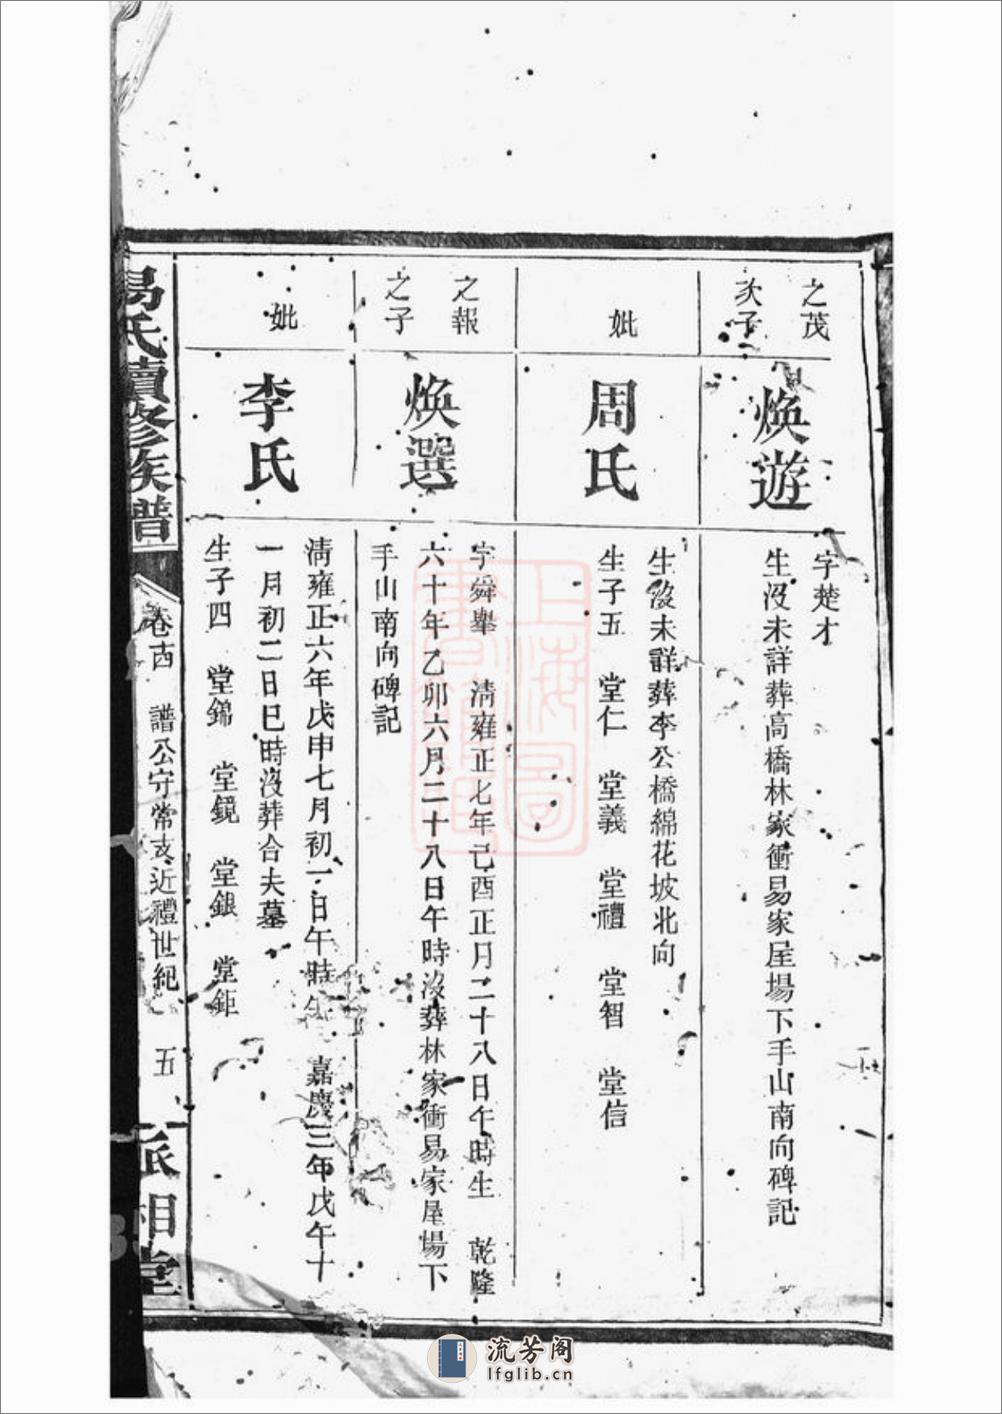 之茂
次子
煥遊
字楚才
生沒未詳葬高橋林家衝易家屋場下手山南向碑記
妣
周氏
生沒未詳葬李公橋綿花坡北向
生子五 堂仁 堂義 堂禮 堂智 堂信
之報
之子
煥選
字舜舉 清雍正七年己酉正月二十八日午時生 乾隆
六十年乙卯六月二十八日午時沒葬林家衝易家屋場下
手山南向碑記
妣
李氏
清雍正六年戊申七月初一日午時生 嘉慶三年戊午十
一月初二日巳時沒葬合夫墓
生子四 堂錦 堂鏡 堂銀 堂鉅
易氏續修族譜
卷十四 譜公守常支近禮世紀 五
上海圖書館藏
流芳阁
lfglib.cn